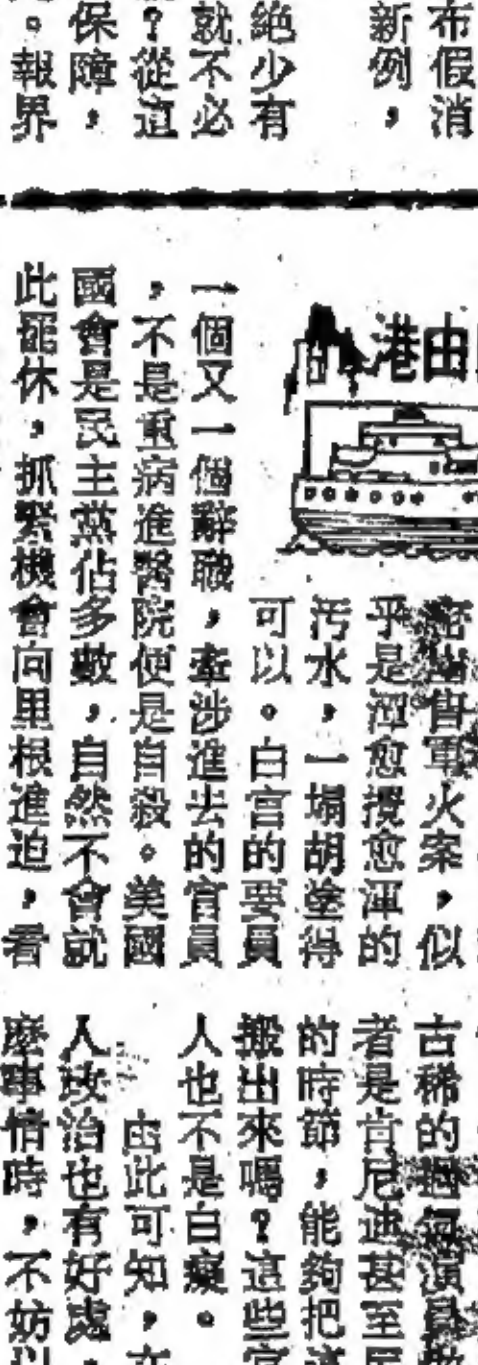 布假消
新例，
絕少有
就不必
？從這
保障，
。報界
港由
密出售軍火案，似
乎是渾愈攪愈渾的
污水，一塌胡塗得
可以。白宮的要員
一個又一個辭職，牽涉進去的官員
，不是重病進醫院便是自殺。美國
國會是民主黨佔多數，自然不會就
此罷休，抓緊機會向里根進迫，看
古稀的過氣演員
者是肯尼迪甚至
的時節，能夠把這
搬出來嗎？這些官
人也不是白癡。
由此可知，在
人政治也有好處，
麼事情時，不妨以